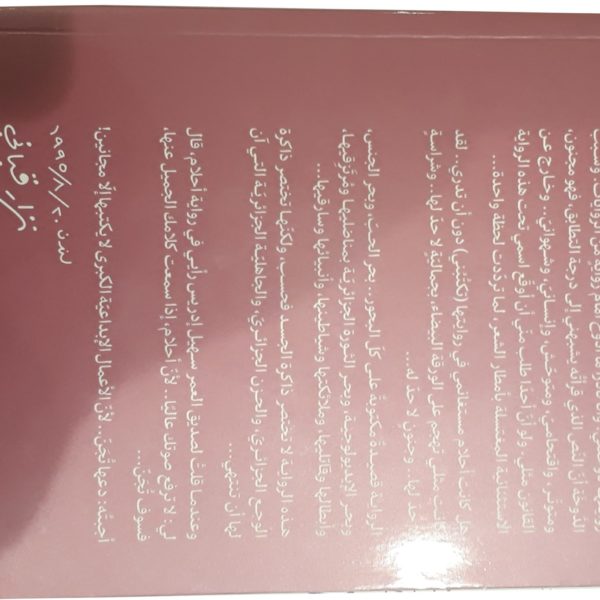 الدوخة أن النص الذي قرأته يشبهني إلى درجة التطابق، فهو مجنون،
ومتوتر، واقتحامي، ومتوحش، وإنساني، وشهواني.. وخارج عن
القانون مثلي. ولو أن أحدا طلب مني أن أوقع اسمي تحت هذه الرواية
الاستثنائية المغتسلة بأمطار الشعر.. لما ترددت لحظة واحدة...
هل كانت أحلام مستغانمي في روايتها (تكتبني) دون أن تدري.. لقد
كانت مثلي تهجم على الورقة البيضاء، بجمالية لا حد لها.. وشراسة
لا حد لها.. وجنون لا حد له...
الرواية قصيدة مكتوبة على كل البحور.. بحر الحب، وبحر الجنس،
وبحر الايديولوجية، وبحر الثورة الجزائرية بمناضليها ومرتزقيها،
وأبطالها وقاتليها، وملائكتها وشياطينها، وأنبيائها وسارقيها...
هذه الرواية لا تختصر ذاكرة الجسد فحسب، ولكنها تختصر ذاكرة
الوجع الجزائري، والحزن الجزائري، والجاهلية الجزائرية التي آن
لها أن تنتهي...
وعندما قلت لصديق العمر سهيل إدريس رأيي في رواية أحلام، قال
لي: لا ترفع صوتك عاليا.. لأن أحلام، إذا سمعت كلامك الجميل عنها،
فسوف تجن...
أجبته: دعها تجن.. لأن الأعمال الإبداعية الكبرى لا يكتبها إلا مجانين!
لندن ١٩٩٥/٨/٢٠
نزار قباني